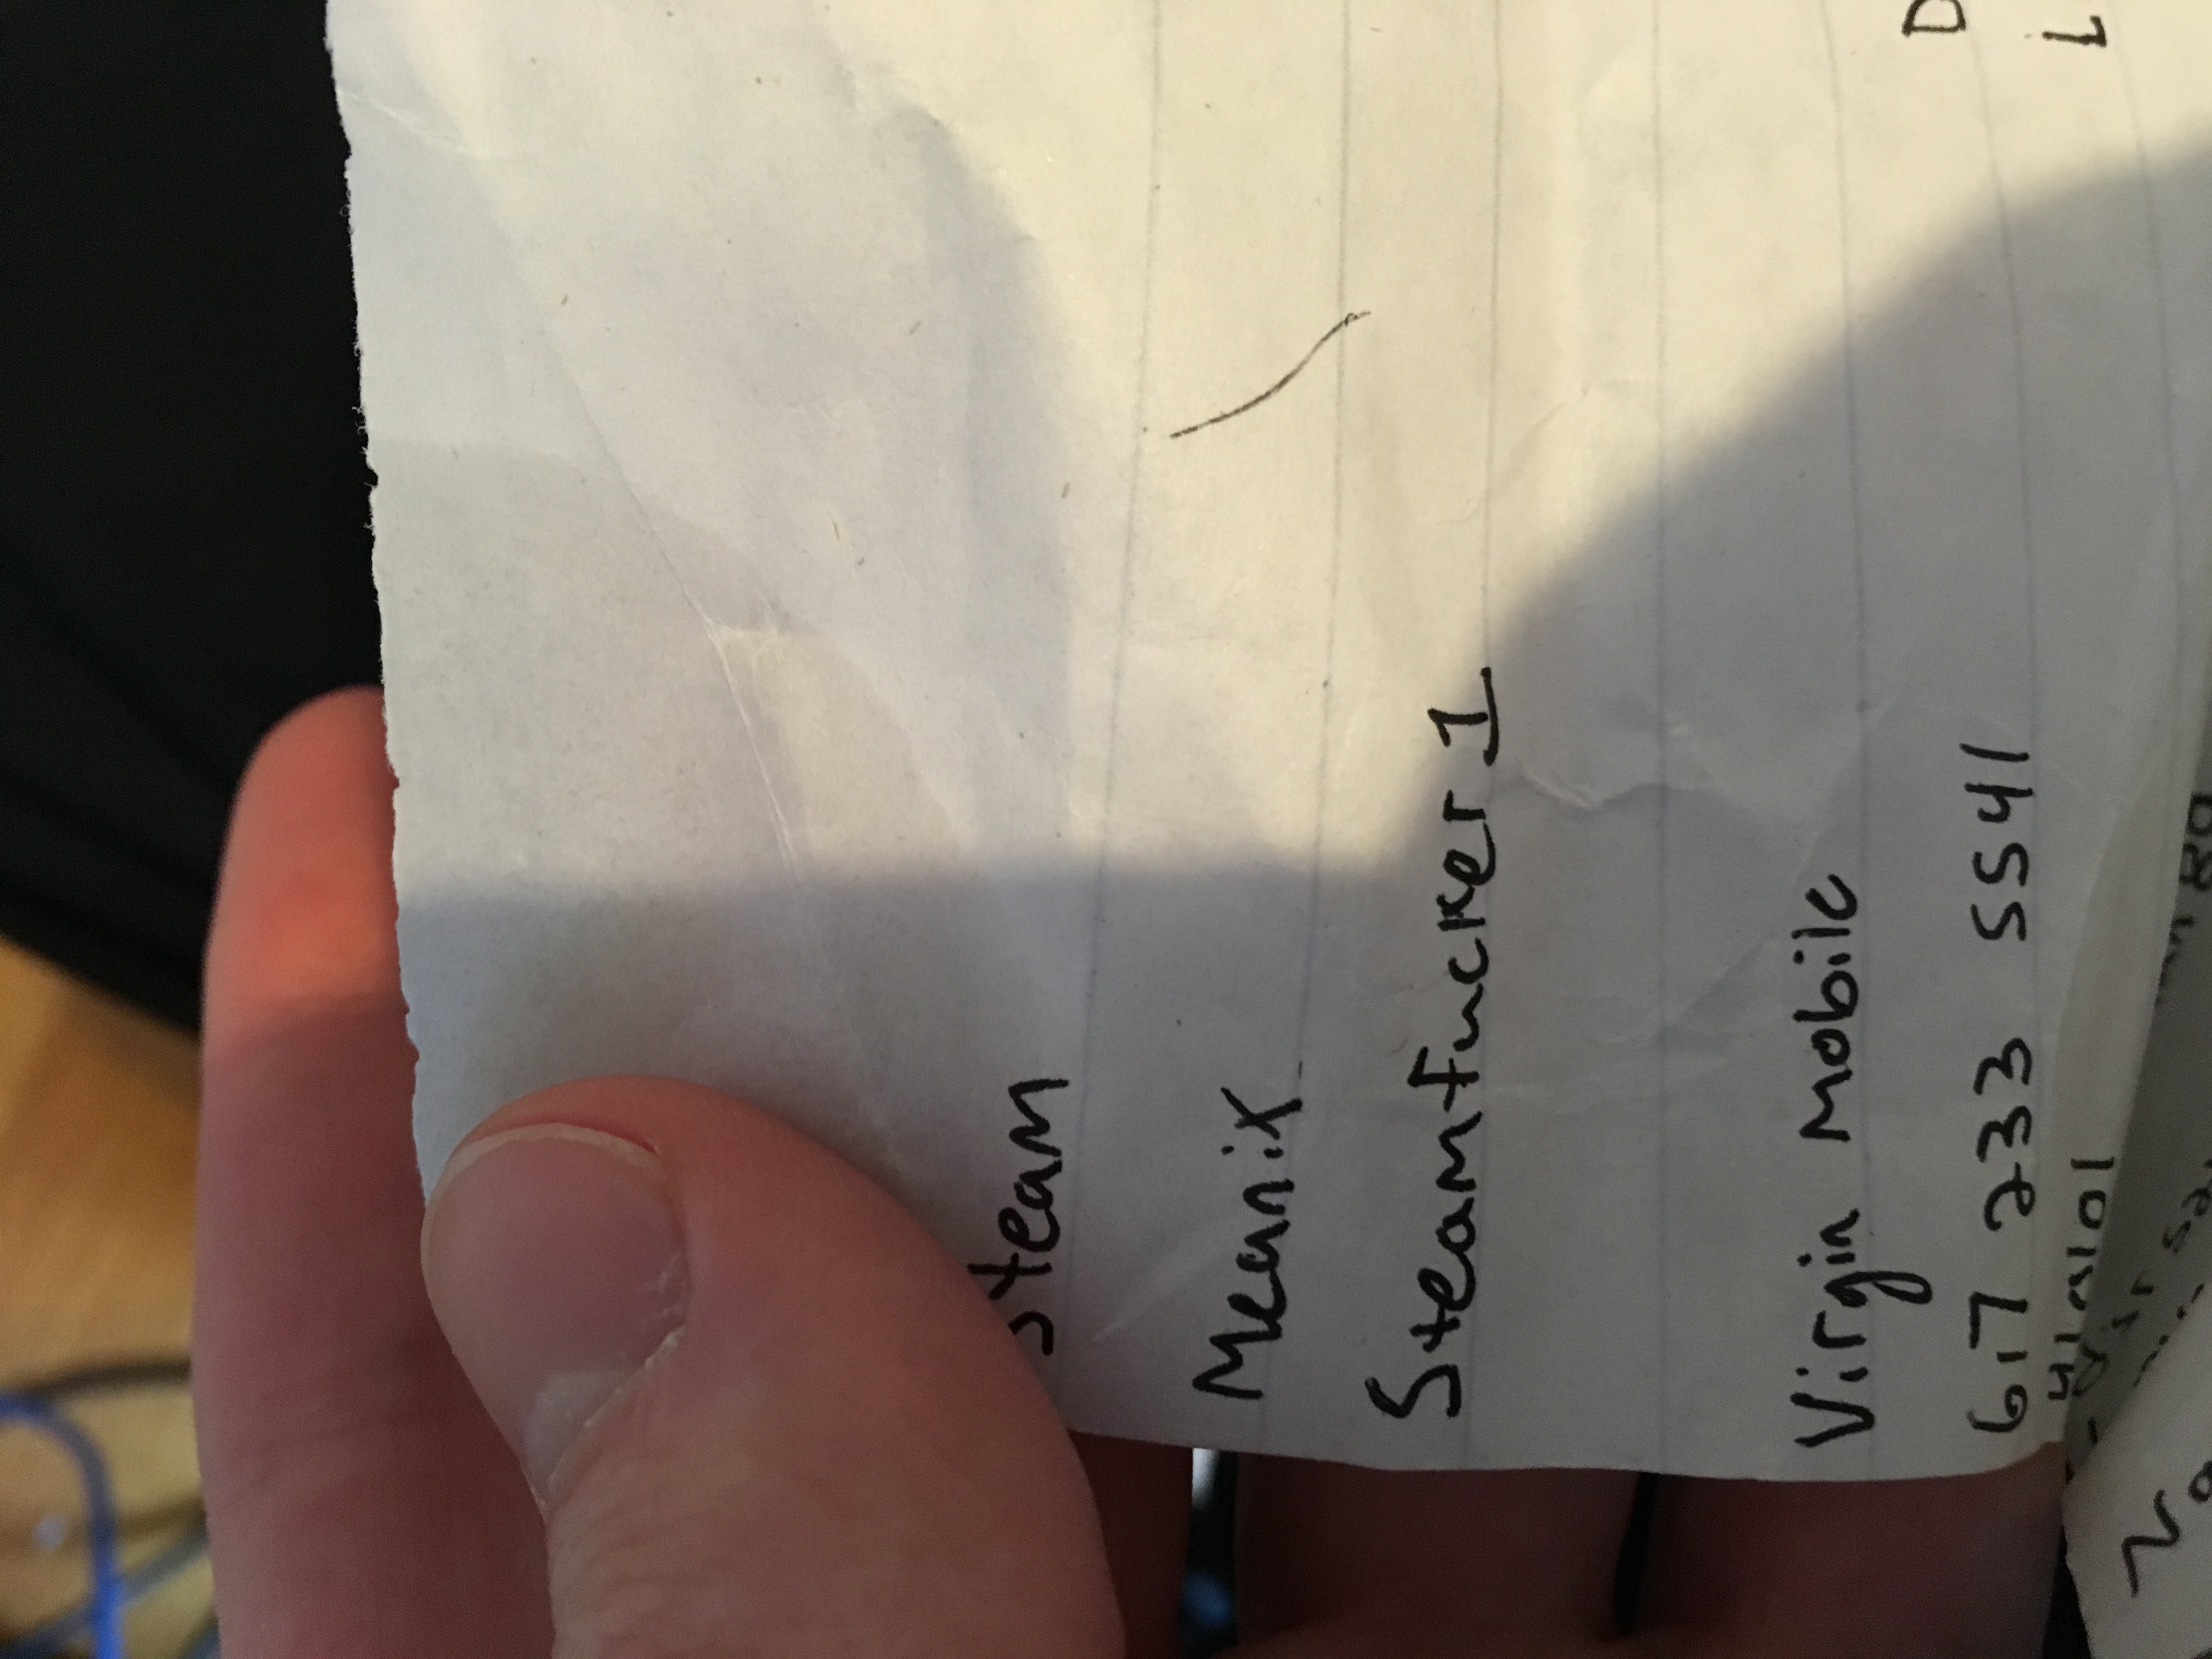 Steam
Meanix
Steamfucker 1
Virgin Mobile
617 233 5541
D
L